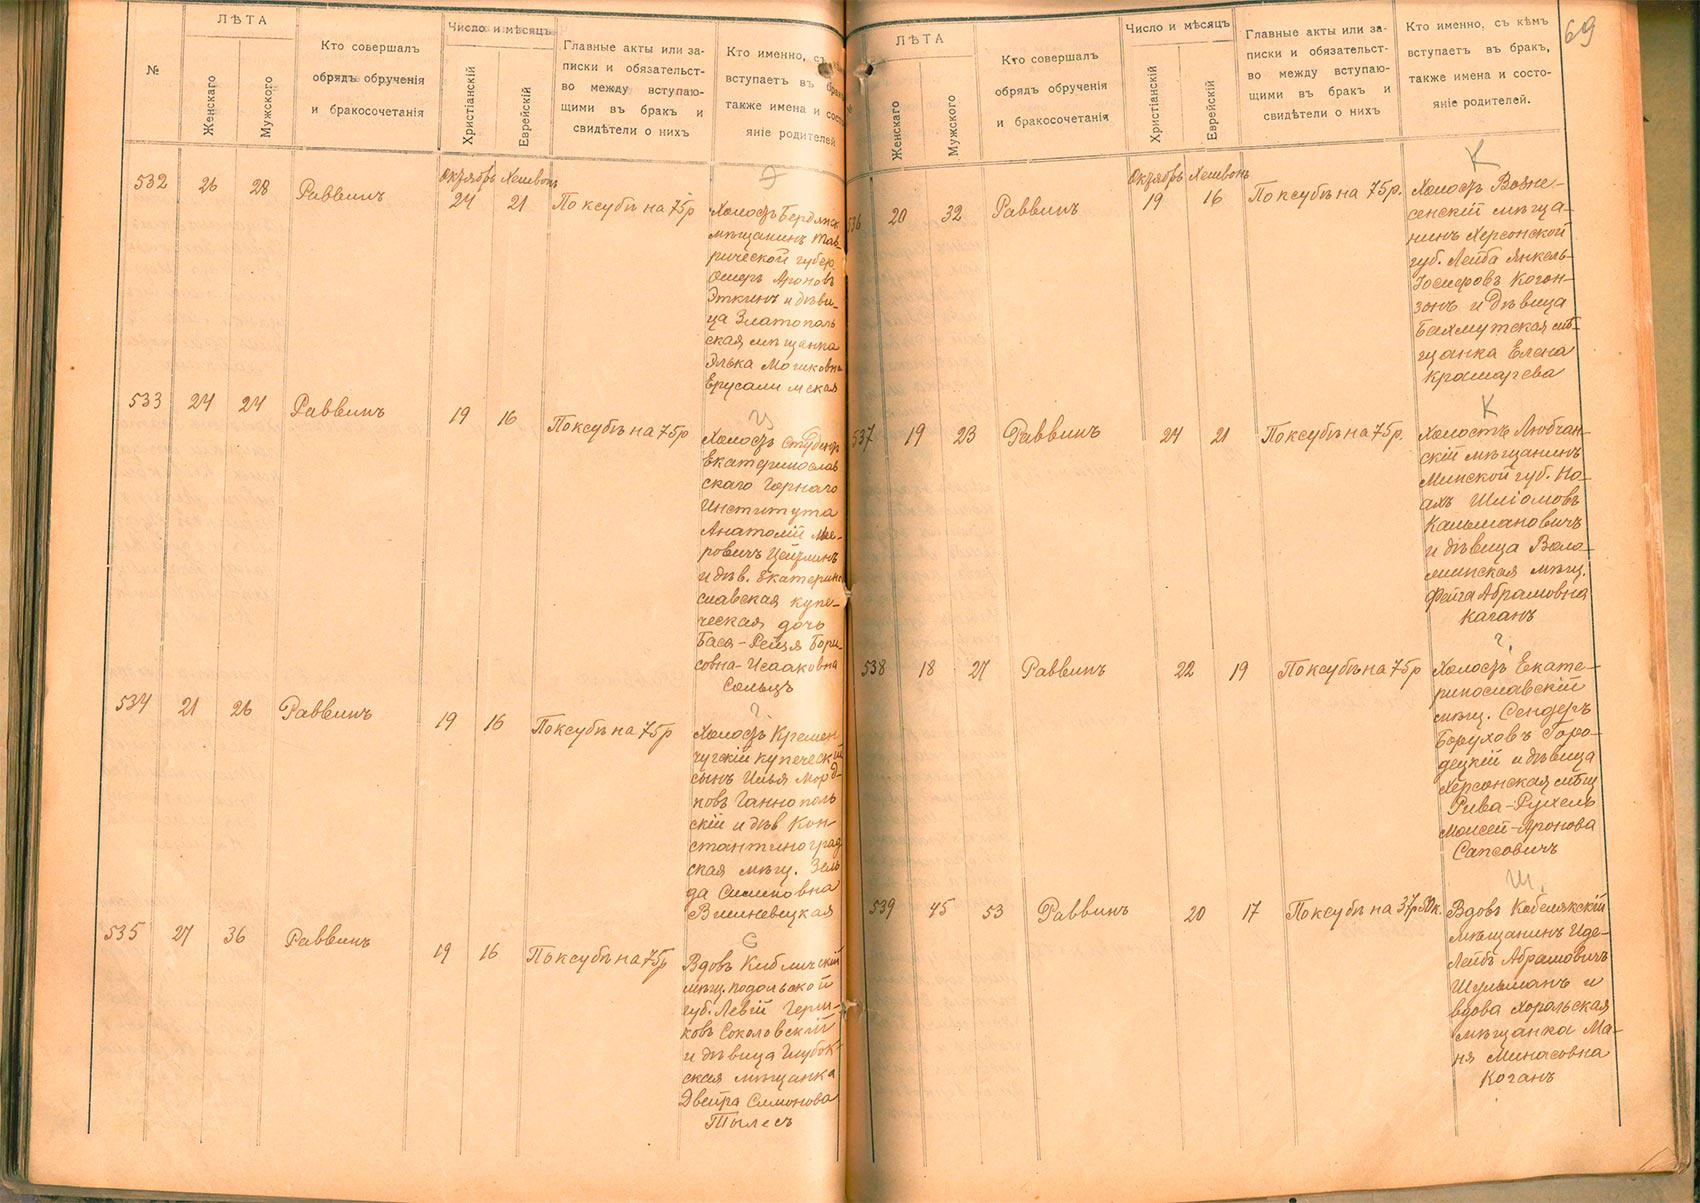 №
ЛѢТА
Женскаго
Мужского
Кто совершалъ
обрядъ обрученія
и бракосочетанія
Число и мѣсяцъ
Христіанскій
Еврейскій
Главные акты или за-
писки и обязательст-
во между вступаю-
щими въ бракъ и
свидѣтели о нихъ
Кто именно, съ
вступаетъ въ бракъ
также имена и состо
яніе родителей
532 26 28 Раввинъ
Октябрь Хешвонъ
24 21 По ксубѣ на 75 р
Э
Холостъ Бердянск
мѣщанинъ Тав
рической губер
Ошеръ Ароновъ
Эткинъ и дѣви-
ца Златополь
ская мѣщанка
Элька Мошковна
Ерусалимская
533 24 24 Раввинъ 19 16 По ксубѣ на 75 р
Ц
Холостъ Студентъ
Екатеринослав
скаго Горнаго
Института
Анатолій Мее-
ровичъ Цейтлинъ
и дѣв. Екатерино
славская купе-
ческая дочь
Бася-Рейзя Бори
совна-Исааковна
Сольцъ
534 21 26 Раввинъ 19 16 По ксубѣ на 75 р
Г
Холостъ Кремен
чугскій купеческій
сынъ ИльяМорд-
ковъ Ганнополь
скій и дѣв Кон
стантиноград
ская мѣщ. Зель
да Симновна
Вишневецкая
535 27 36 Раввинъ 19 16 По ксубѣ на 75 р
С
Вдовъ Кибличскій
мѣщ. Подольской
губ. Левій Герш-
ковъ Соколовскій
и дѣвица Глубок-
ская мѣщанка
Двейра Симонова
Тылесъ
69
ЛѢТА
Женскаго
Мужского
Кто совершалъ
обрядъ обрученія
и бракосочетанія
Число и мѣсяцъ
Христіанскій
Еврейскій
Главные акты или за-
писки и обязательст-
во между вступаю-
щими въ бракъ и
свидѣтели о нихъ
Кто именно, съ кѣмъ
вступаетъ въ бракъ,
также имена и состо-
яніе родителей.
536 20 32 Раввинъ
Октябрь Хешвонъ
19 16 По ксубѣ на 75 р.
К
Холостъ Возне-
сенскій мѣща-
нинъ Херсонской
губ. Лейба Янкель-
Іосифовъ Коган-
зонъ и дѣвица
Бахмутская мѣ-
щанка Елена
Крамарева
537 19 23 Раввинъ 24 21 По ксубѣ на 75 р.
К
Холостъ Любчан-
скій мѣщанинъ
Минской губ. Но-
ахъ Шліомовъ
Кальмановичъ
и дѣвица Воло-
жинская мѣщ.
Фейга Абрамовна
Каганъ
538 18 27 Раввинъ 22 19 По ксубѣ на 75 р
Г
Холостъ Екате-
ринославскій
мѣщ. Сендеръ
Боруховъ Горо-
децкій и дѣвица
Херсонская мѣщ
Рива-Рухель
Моисей-Аронова
Сапсовичъ
539 45 53 Раввинъ 20 17 По ксубѣ на 37 р 50 к.
Ш.
Вдовъ Кобелякскій
мѣщанинъ Иде-
Лейбъ Абрамовичъ
Шульманъ и
вдова Хорольская
мѣщанка Ма-
ня Минасовна
Коганъ